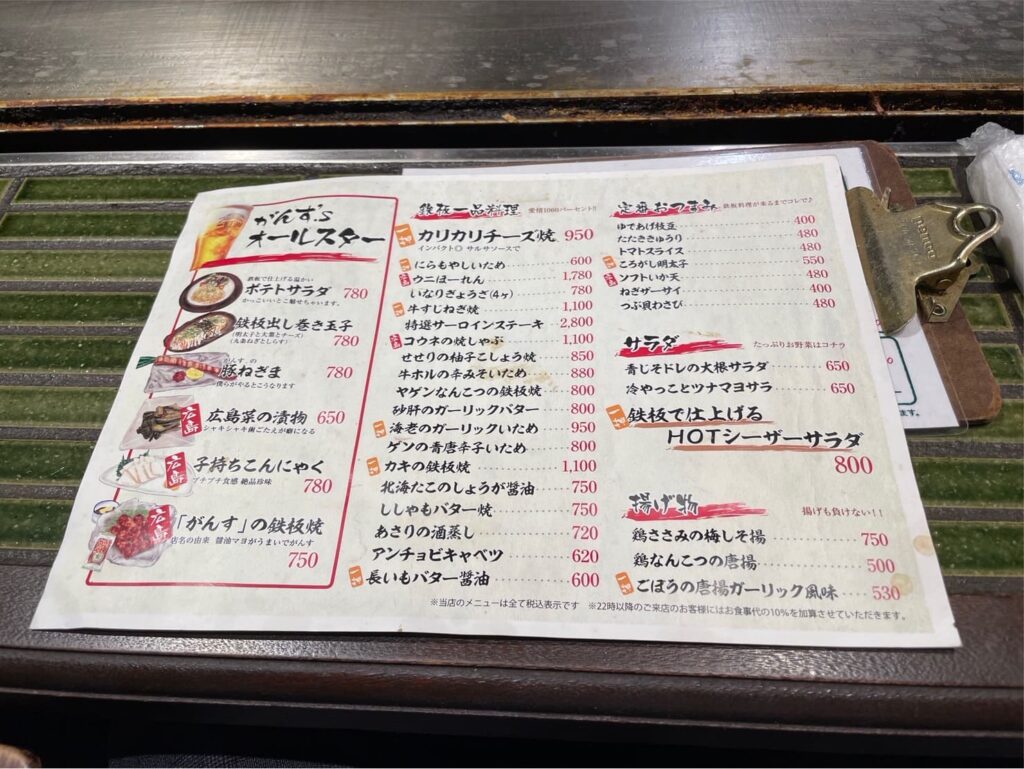 がんず's
オールスター
鉄板で仕上げる温かい
ポテトサラダ 780
かっこいいとこ魅せちゃいます。
鉄板出し巻き玉子
(明太子と大葉とチーズ)
(九条ねぎとしらす) 780
がんず の
豚ねぎま 780
僕らがやるとこうなります
広島
広島菜の漬物 650
シャキシャキ歯ごたえが癖になる
広島
子持ちこんにゃく
プチプチ食感 絶品珍味 780
広島
「がんす」の鉄板焼
店名の由来 醤油マヨがうまいでがんす
750
鉄板一品料理 愛情1000パーセント!!
カリカリチーズ焼 950
インパクト◎ サルサソースで
にらもやしいため 600
ウニほーれん 1,780
いなりぎょうざ(4ヶ) 780
牛すじねぎ焼 1,100
特選サーロインステーキ 2,800
コウネの焼しゃぶ 1,100
せせりの柚子こしょう焼 850
牛ホルの辛みそいため 880
ヤゲンなんこつの鉄板焼 800
砂肝のガーリックバター 800
海老のガーリックいため 950
ゲソの青唐辛子いため 800
カキの鉄板焼 1,100
北海たこのしょうが醤油 750
ししゃもバター焼 750
あさりの酒蒸し 720
アンチョビキャベツ 620
長いもバター醤油 600
定番おつまみ 鉄板料理が来るまでコレで♪
ゆであげ枝豆 400
たたききゅうり 480
トマトスライス 480
ころがし明太子 550
ソフトいか天 480
ねぎザーサイ 400
つぶ貝わさび 480
サラダ たっぷりお野菜はコチラ
青じそドレの大根サラダ 650
冷やっことツナマヨサラ 650
鉄板で仕上げる
HOTシーザーサラダ
800
揚げ物 揚げも負けない!!
鶏ささみの梅しそ揚 750
鶏なんこつの唐揚 500
ごぼうの唐揚ガーリック風味 530
※当店のメニューは全て税込表示です ※22時以降のご来店のお客様にはお食事代の10%を加算させていただきます。